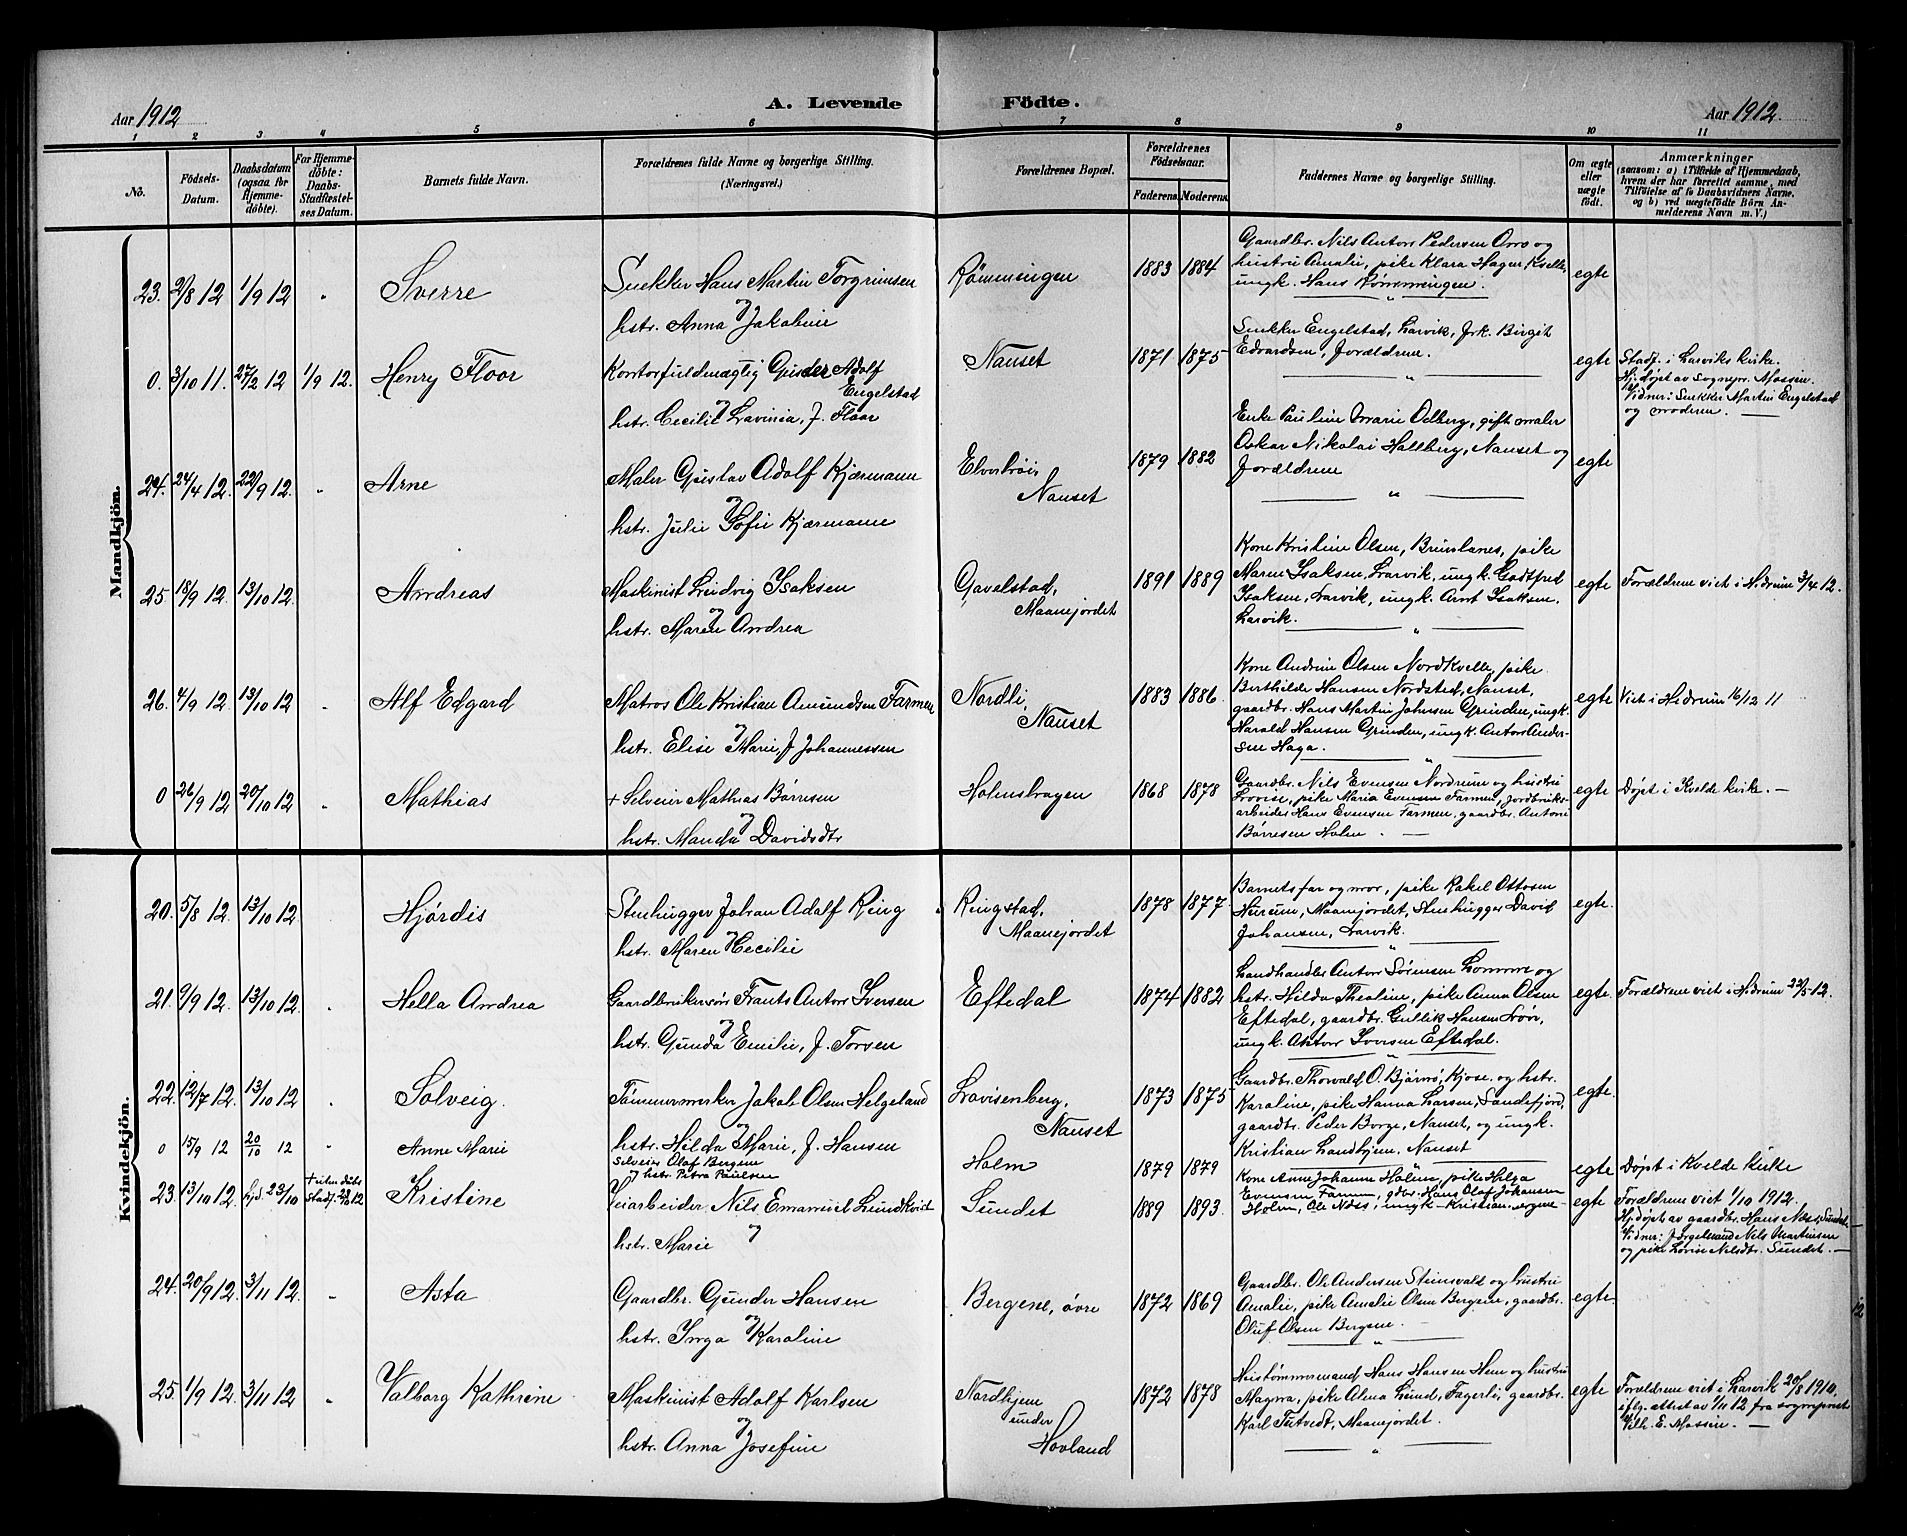 Aar 1912
A. Levende Födte.
Aar 1912.
1 2 3 4 5 6 7 8 9 10 11
No.
Födsels-Datum.
Daabsdatum (ogsaa for Hjemme-döbte).
For Hjemme-döbte: Daabs-Stadfæstel-ses Datum.
Barnets fulde Navn.
Forældrenes fulde Navne og borgerlige Stilling.
(Næringsvei.)
Forældrenes Bopæl.
Forældrenes Födselsaar.
Faderens. Moderens.
Faddernes Navne og borgerlige Stilling.
Om ægte eller uægte födt.
Anmærkninger
(saasom: a) i Tilfælde af Hjemmedaab,
hvem der har forrettet samme, med
Tilföielse af to Daabsvidners Navne,
og b) ved uægtefödte Börn An-
melderens Navn m. V.)
Mandkjön.
23. 2/8 12 1/9 12 " Sverre
Snekker Hans Martin Torgrimsen
og
hstr. Anna Jakobine
Rømmingen
1883 1884
Gaardbr. Nils Anton Pedersen Omo og
hustru Amalie, pike Klara Hagen Kvelle,
ungk. Hans Rømmingen.
egte
0. 3/10 11. 27/2 12 1/9 12. Henry Floor
Kontorfuldmægtig Gunder Adolf
Engelstad
og
hstr. Cecilie Lavinia, f. Floor
Nanset
1871 1875
Snekker Engelstad, Larvik, frk. Birgit
Edvardsen, forældrene.
egte
Stadf. i Larviks kirke.
Hj.døpt av Sognepr. Massin.
Vidner: Snekker Martin Engelstad
og moderen.
24. 24/4 12. 22/9 12. " Arne
Maler Gustav Adolf Kjærmann
og
hstr. Julie Sofie Kjærmann
Nanset
1879 1882
Enke Pauline Marie Odberg, gift maler
Oskar Nikolai Hallberg, Nanset og
forældrene
egte
25 18/9 12. 13/10 12. " Andreas
Maskinist Ludvig Isaksen
og
hstr. Maren Andrea
Gavelstad,
Maanejordet
1891 1889
Kone Kristine Olsen, Brunlanes, pike
Maren Isaksen, Larvik, ungk. Godtfred
Isaksen, Larvik, ungk. Arnt Isaksen,
Larvik.
egte
Forældrene viet i Hedrum 3/4 12.
26. 4/9 12. 13/10 12 " Alf Edgard
Matros Ole Kristian Amundsen Farmen
og
hstr. Elise Marie, f. Johannessen
Nordli,
Nanset
1883 1886
Kone Andrine Olsen Nordkvelle, pike
Berthilde Hansen Nordsted, Nanset,
gaardbr. Hans Martin Johnsen Grinden, ungk.
Harald Hansen Grinden, ungk. Anton Ander-
sen Haga.
egte
Viet i Hedrum 16/12 11
0 26/9 12 20/10 12 " Mathias
+ Selveier Mathias Børresen
og
hstr. Manda Davidsdtr
Holmshagen
1868 1878
Gaardbr. Nils Evensen Nordrum og hustru
Lovise, pike Maria Evensen Farmen, jordbruks-
arbeider Hans Evensen Farmen, gaardbr. Anton
Børresen Holm.
egte
Døpt i Kvelde kirke.
Kvindekjön.
20. 5/8 12. 13/10 12 Hjørdis
Stenhugger Johan Adolf Ring
og
hstr. Maren Cecilie
Ringstad,
Maanejordet
1878 1877
Barnets far og mor, pike Rakel Ottosen
Maanejordet, Stenhugger David
Johansen, Larvik.
egte.
21. 9/9 12. 13/10 12. Hella Andrea
Gaardbrukersøn Frants Anton Iversen
og
hstr. Gunda Emilie, f. Torsen
Eftedal
1874 1882
Landhandler Anton Sørensen Lomme og
hstr. Hilda Thealine, pike Anna Olsen
Eftedal, gaardbr. Gullik Hansen Moe,
ungk. Anton Iversen Eftedal.
egte
Forældrene viet i Hedrum 22/5 12.
22. 12/7 12. 13/10 12 Solveig.
Tømmermerker Jakob Olsen Helgeland
og
hstr. Hilda Marie, f. Hansen
Lovisenberg,
Nanset
1873 1875
Gaardbr. Thorvald O. Bjørnø, Kjose, og hstr.
Karoline, pike Hanna Larsen, Sandefjord,
gaardbr. Peder Borge, Nanset, og ungk.
Kristian Landhjem, Nanset
egte.
0 15/9 12 20/10 12 " Anne Marie
Selveier Olaf Bergene
og hstr. Petra Paulsen
Holm
1879 1879
Kone Anne Johanne Holm, pike Helga
Evensen Farmen, gdbr. Hans Olaf Johansen
Holm, Ole Næss, ungk. Kristian
egte
Døpt i Kvelde kirke
23. 13/10 12. hjd. 23/10 + uten dåbs stadf. 12 Kristine
Veiarbeider Nils Emanuel Lundkvist
og
hstr. Marie
Sundet
1889 1893.
egte
Forældrene viet 1/10 1912.
Hj.døpt av gaardbr. Hans Næss, Sundet
Vidner: Nils Martinsen
og pike Lovise Nilsdtr. Sundet.
24. 20/9 12. 3/11 12. " Asta
Gaardbr. Gunder Hansen
og
hstr. Inga Karoline
Bergene, øvre
1872 1869
Gaardbr. Ole Andersen Stensvald og hustru
Amalie, pike Amalie Olsen Bergene, gaardbr.
Oluf Olsen Bergene.
egte.
25 1/9 12. 3/11 12 " Valborg Kathrine
Maskinist Adolf Karlsen
og
hstr. Anna Josefine
Nordhjem
under
Hovland
1872 1878
Hans Hansen Hem og hustru
Magna, pike Alma Lund, Fagerli, gaardbr.
Karl Tutvedt, Maanejordet.
egte
Forældrene viet i Larvik 20/8 1910,
iflg. attest av 1/11 12 fra sogneprest
Vilh. E. Massin.